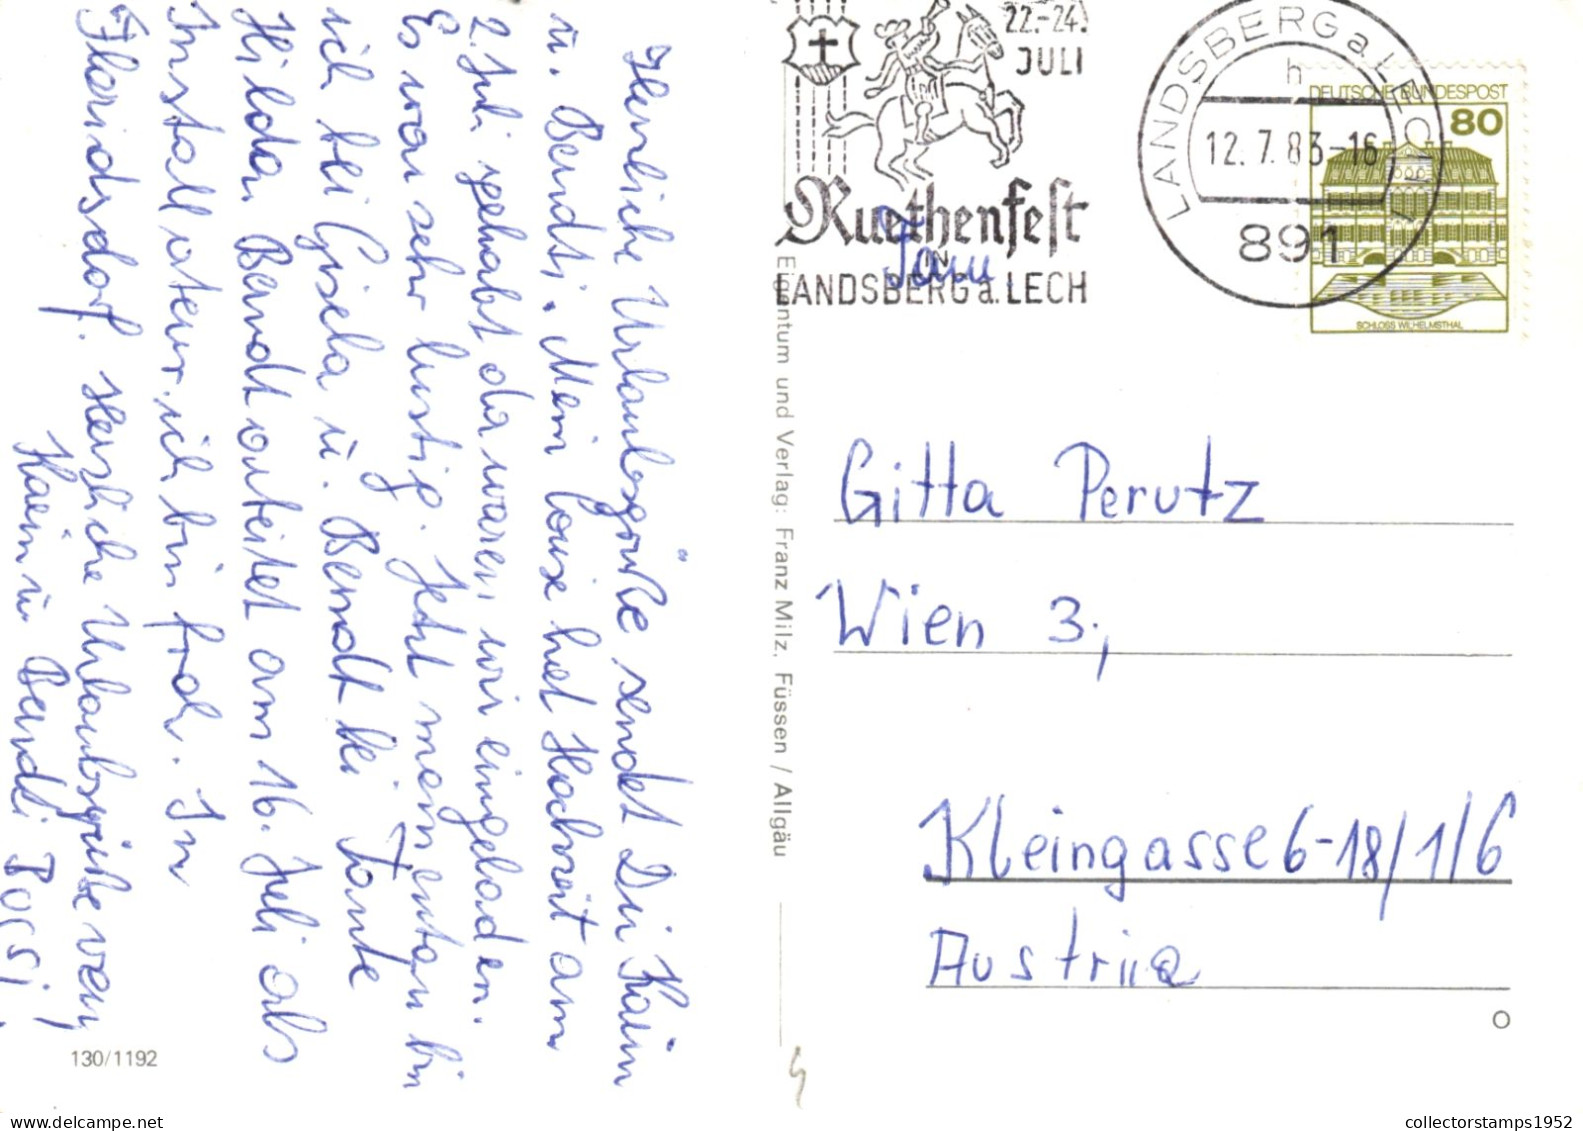 Herzliche Urlaubsgrüße sendet Dir Karin
u. Berndti. Mein Couse hat Hochzeit am
2. Juli gehabt da waren wir eingeladen.
Es war sehr lustig. Jetzt momentan bin
ich bei Gisela u. Berndt bei Tante
Hilda. Berndt arbeitet am 16. Juli als
Installateur, ich bin froh. In
Floridsdorf. Herzliche Urlaubsgrüße von
Karin u. Berndti Bossi.
130/1192
Eigentum und Verlag: Franz Milz, Füssen / Allgäu
22.-24.
JULI
Ruethenfest
IN
LANDSBERG a. LECH
LANDSBERG a LECH
h
12.7.83-16
891
DEUTSCHE BUNDESPOST
80
SCHLOSS WILHELMSTHAL
Frau
Gitta Perutz
Wien 3.,
Kleingasse 6-18/1/6
Austria
O
collectorstamps1952